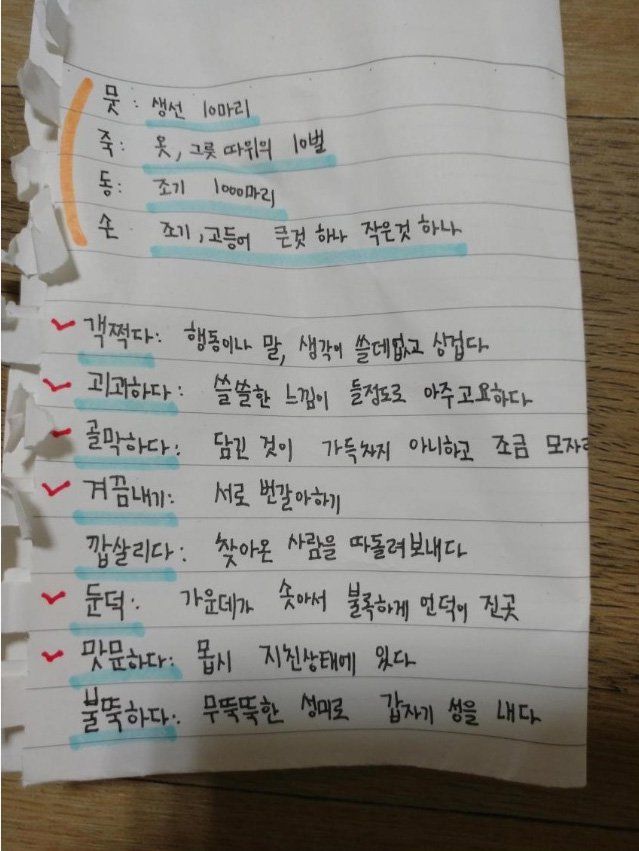 뭇 : 생선 10마리
죽 : 옷, 그릇 따위의 10벌
동 : 조기 1000마리
손 조기, 고등어 큰것 하나 작은것 하나
객쩍다 : 행동이나 말, 생각이 쓸데없고 싱겁다
괴괴하다 : 쓸쓸한 느낌이 들정도로 아주고요하다
골막하다 : 담긴 것이 가득차지 아니하고 조금 모자라
겨끔내기 : 서로 번갈아하기
깝살리다 : 찾아온 사람을 따돌려보내다
둔덕 : 가운데가 솟아서 불룩하게 언덕이 진곳
맛문하다 : 몹시 지친상태에 있다
불뚝하다 : 무뚝뚝한 성미로 갑자기 성을 내다